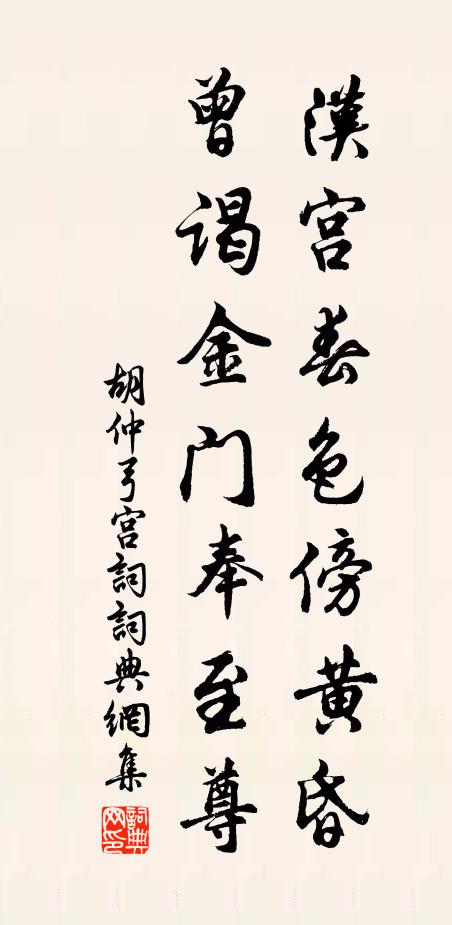 漢宮春色傍黄昏
曾謁金门奉至尊
胡仲弓宮詞詞典網集
詞典
网印